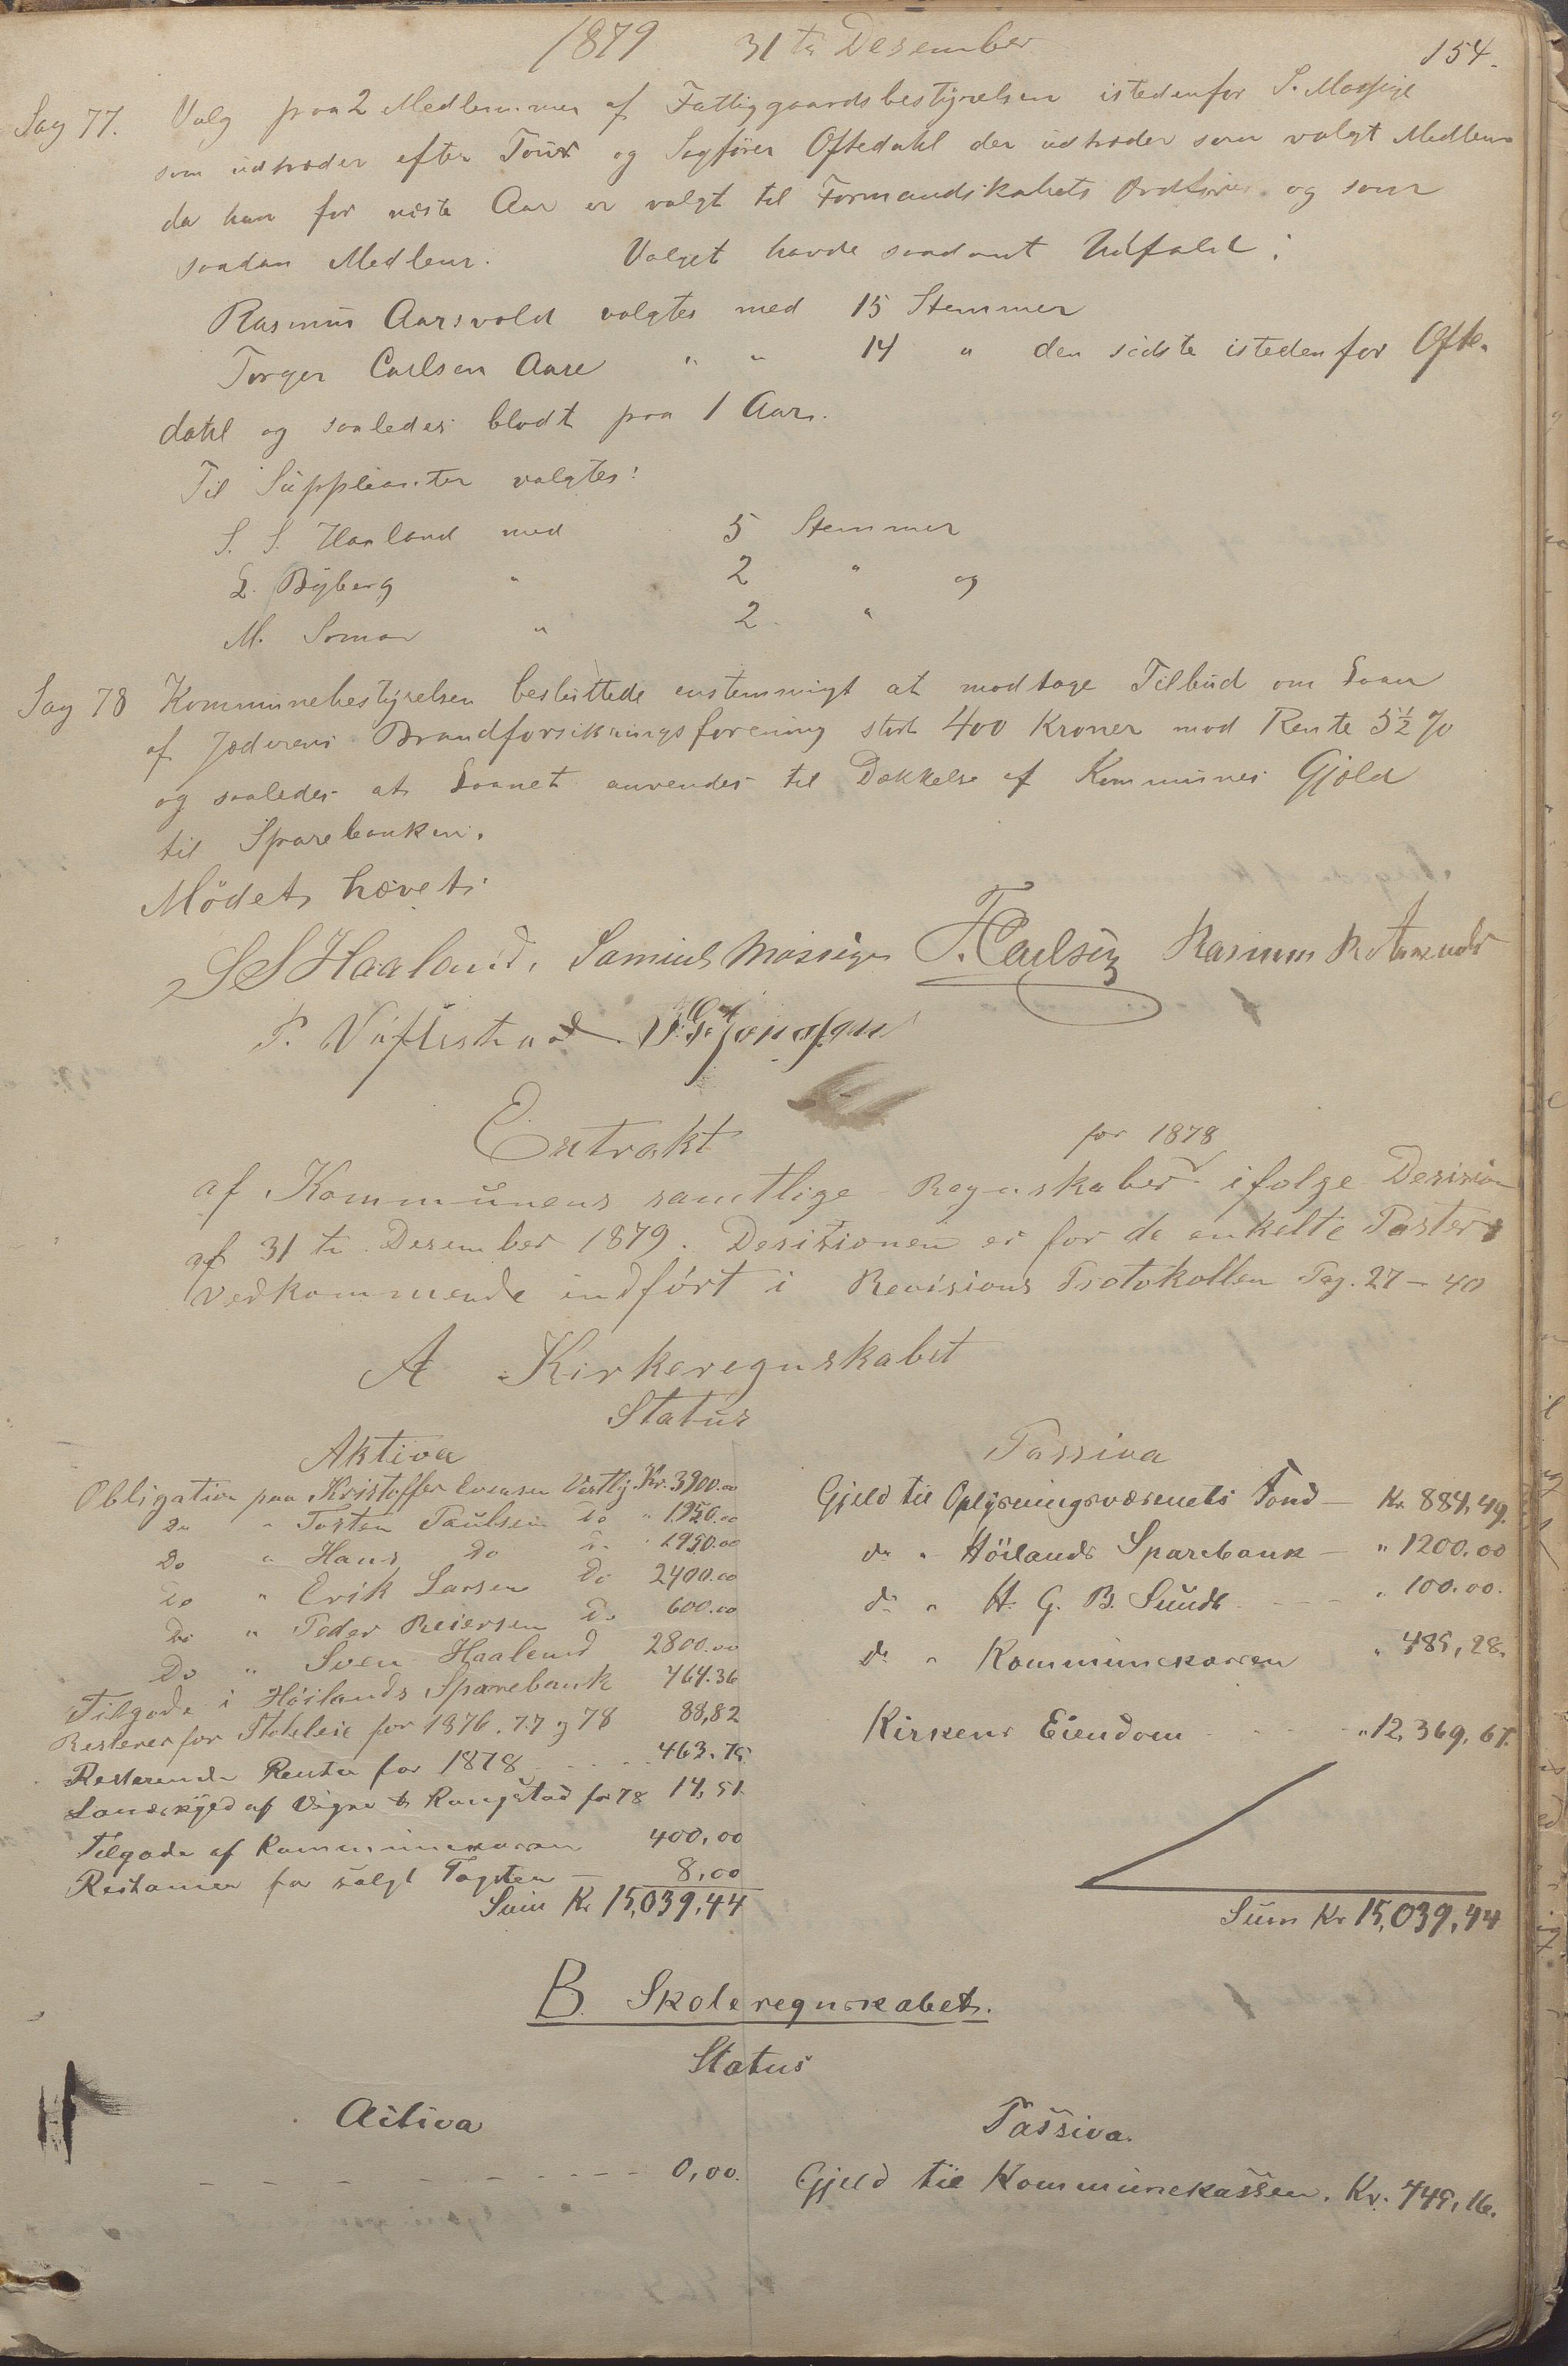 1879 31te Desember 154.
Sag 77. Valg paa 2 Medlemmer af Fattiggaardsbestyrelsen istedenfor S. Mossige
som udtræder efter Tour og Sagfører Oftedahl der udtræder som valgt Medlem
da han for næste Aar er valgt til Formandskabets Ordfører og som
saadan Medlem. Valget havde saadant Udfald:
Rasmus Aarsvold valgtes med 15 Stemmer
Torger Carlsen Aase " " 14 " den sidste istedenfor Ofte-
dahl og saaledes blodt paa 1 Aar.
Til Suppleanter valgtes:
S. S. Haaland med 5 Stemmer
L. Byberg " 2 " og
M. Somar " 2 "
Sag 78 Kommunebestyrelsen besluttede enstemmigt at modtage Tilbud om Laan
af Jæderens Brandforsikringsforening stort 400 Kroner mod Rente 5½ %
og saaledes at Laanet anvendes til Dækkelse af Kommunes Gjæld
til Sparebanken.
Mödet hævet.
S S Haaland, Samuel Mossige T. Carlsen Rasmus
T.
Extrakt
for 1878
af Kommunens samtlige Regnskaber ifølge Desision
af 31te Desember 1879. Desisionen er for de enkelte Poster
vedkommende indfört i Revisions Protokollen Pag. 27-40
A Kirkeregnskabet
Status
Aktiva Passiva
Obligation paa Kristoffer Evensen Vestly Kr. 3900.00 Gjeld til Oplysningsvæsenets Fond — Kr. 884,49.
Do " Torsten Paulsen Do " 1950.00
Do " Hans Do Do " 1950.00 do " Höilands Sparebank — " 1200.00
Do " Erik Larsen Do 2400.00 do " H. G. B. Sundt " 100.00.
Do " Peder Reiersen Do 600.00
Do " Sven Haaland 2800.00 do " Kommunekassen " 485,28.
Tilgode i Höilands Sparebank 464.36
Resterer for Stoleleie for 1876. 77 og 78 88,82 Kirkens Eiendom " 12,369,67.
Resterende Renter for 1878 463.75
Landskyld af Vigre & Rangstad for 78 14,51
Tilgode af Kommunekassen 400,00
Restancer for solgt Tagsten — 8,00
Sum Kr 15,039,44 Sum Kr 15,039,44
B. Skoleregnskabet.
Status
Activa Passiva.
0,00. Gjeld til Kommunekassen. Kr. 445,16.